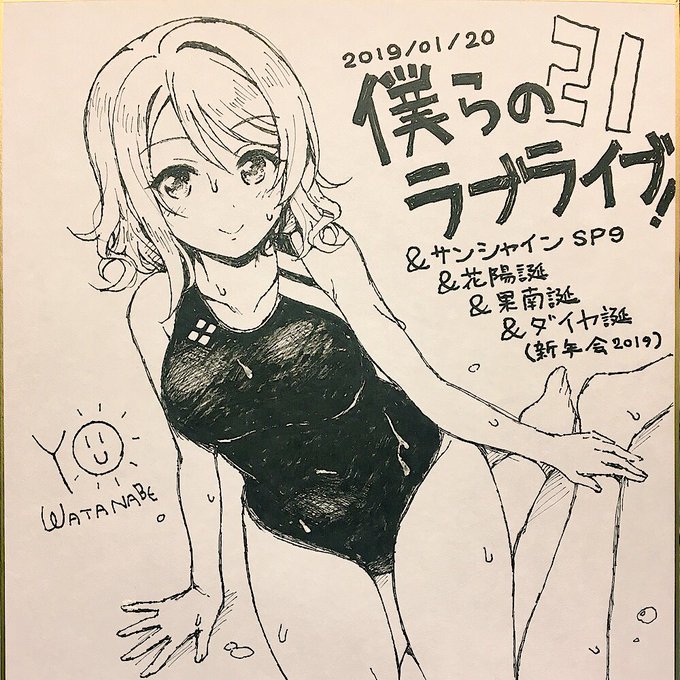 2019/01/20
僕らのラブライブ! 21
&サンシャイン SP9
&花陽誕
&果南誕
&ダイヤ誕
(新年会2019)
YO
WATANABE